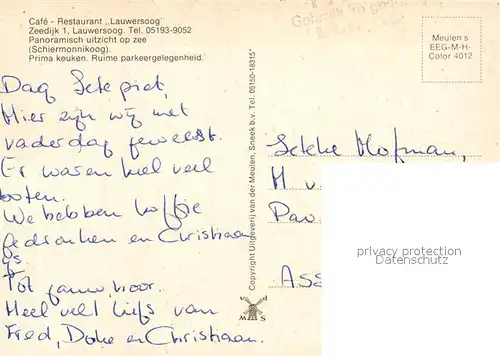 Café - Restaurant „Lauwersoog"
Zeedijk 1, Lauwersoog. Tel. 05193-9052
Panoramisch uitzicht op zee
(Schiermonnikoog).
Prima keuken. Ruime parkeergelegenheid.
Dag
Hier zijn wij met
vaderdag geweest.
Er waren heel veel
boten.
We hebben koffie
gedronken en Christiaan
ijs.
Tot gauw hoor.
Heel veel liefs van
Fred, Doke en Christiaan.
Copyright Uitgeverij van der Meulen, Sneek b.v. Tel. 05150-18315*
M S
Meulen s
EEG-M-H-
Color 4012
Hofman,
H v
Pav
ASS
privacy protection
Datenschutz